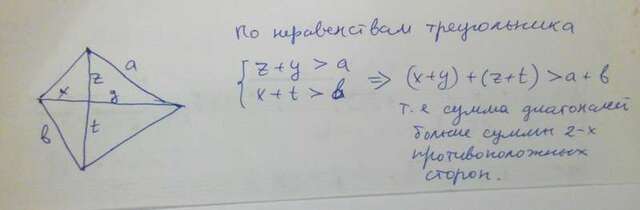 По неравенствам треугольника
z + y > a
x + t > b
⇒ (x+y) + (z+t) > a + b
т. е сумма диагоналей
больше суммы 2-х
противоположных
сторон.
a
z
x
y
t
b